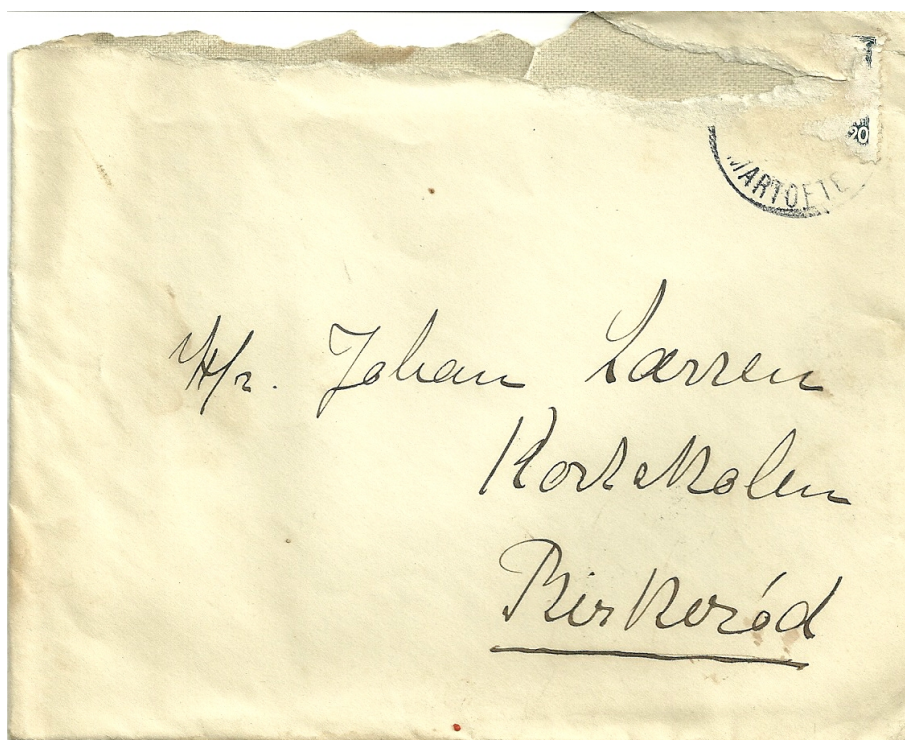 20
MARTOFTE
Hr. Johan Larsen
Kostskolen
Birkerød